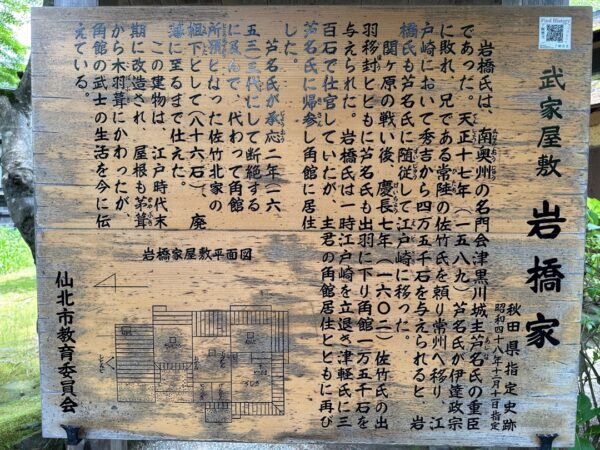 Find History
武家屋敷 岩橋家
秋田県指定史跡
昭和四十八年十一月十日指定
岩橋氏は、南奥州の名門会津黒川城主芦名氏の重臣
であった。天正十七年(一五八九)芦名氏が伊達政宗
に敗れ、兄である常陸の佐竹氏を頼り常州へ移り 江
戸崎において秀吉から四万五千石を与えられると 岩
橋氏も芦名氏に随従して江戸崎に移った。
関ヶ原の戦い後、慶長七年(一六〇二)佐竹氏の出
羽移封とともに芦名氏も出羽に下り角館一万五千石を
与えられた。岩橋氏は一時江戸崎を立退き津軽氏に三
百石で仕官していたが、主君の角館居住とともに再び
芦名氏に帰参し角館に居住
した。
芦名氏が承応二年(一六
五三)三代にして断絶する
に及んで、代わって角館
所預となった佐竹北家の
組下として(八十六石)、廃
藩に至るまで仕えた。
この建物は、江戸時代末
期に改造され、屋根も茅葺
から木羽葺にかわったが、
角館の武士の生活を今に伝
えている。
岩橋家屋敷平面図
仙北市教育委員会